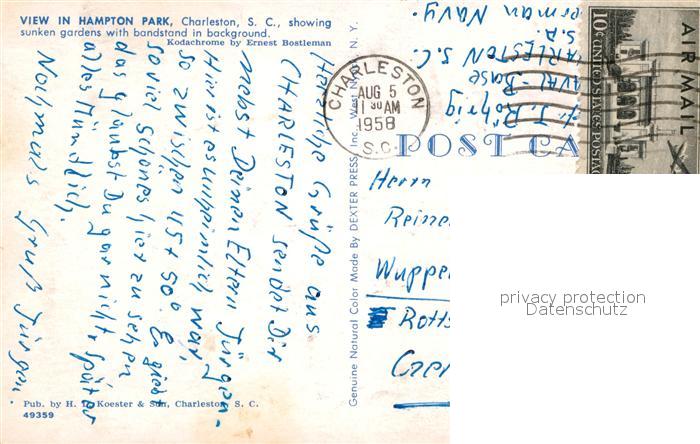 VIEW IN HAMPTON PARK, Charleston, S. C., showing
sunken gardens with bandstand in background.
Kodachrome by Ernest Bostleman
Herzliche Grüße aus
CHARLESTON sendet Dir
nebst Deinen Eltern Jürgen.
Hier ist es unheimlich warm,
so zwischen 45 + 50°. Es giebt
soviel schönes hier zu sehen
das glaubst Du gar nicht. Später
alles Mündlich.
Nochmals Gruß Jürgen
Pub. by H. Koester & Son, Charleston, S. C.
49359
Genuine Natural Color Made By DEXTER PRESS, Inc., West Nyack, N. Y.
J. Röhrig
NAVAL-Base
CHARLESTON S.C.
erman Navy.
CHARLESTON
AUG 5
1 30 AM
1958
S.C.
POST CA
AIR MAIL
10¢ UNITED STATES POSTAG
Herrn
Reine
Wuppe
Rotts
privacy protection
Datenschutz